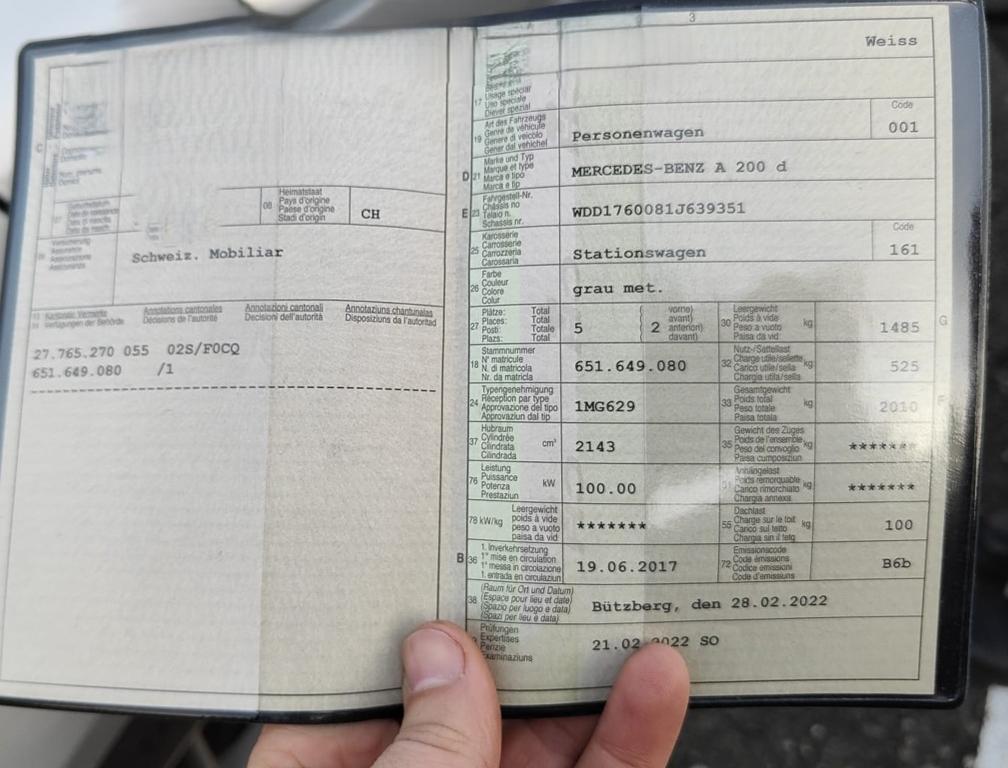 3
C
08
Heimatstaat
Pays d'origine
Paese d'origine
Stadi d'origin
CH
Schweiz. Mobiliar
Annotations cantonales
Décisions de l'autorité
Annotazioni cantonali
Decisioni dell'autorità
Annotaziuns chantunalas
Disposiziuns da l'autoritad
Verfügungen der Behörde
27.765.270 055 02S/F0CQ
651.649.080 /1
Weiss
17
Usage spécial
Uso speciale
Diever spezial
19
Art des Fahrzeugs
Genre de véhicule
Genere di veicolo
Gener dal vehichel
Personenwagen
Code
001
D 21
Marke und Typ
Marque et type
Marca e tipo
Marca e tip
MERCEDES-BENZ A 200 d
E 23
Fahrgestell-Nr.
Châssis no
Telaio n.
Schassis nr.
WDD1760081J639351
25
Karosserie
Carrosserie
Carrozzeria
Carossaria
Stationswagen
Code
161
26
Farbe
Couleur
Colore
Colur
grau met.
27
Plätze: Total
Places: Total
Posti: Totale
Plazs: Total
5
( vorne)
avant)
anteriori)
( davant)
2
30
Leergewicht
Poids à vide
Peso a vuoto
Paisa da vid
kg
1485
G
18
Stammnummer
N° matricule
N. di matricola
Nr. da matricla
651.649.080
32
Nutz-/Sattellast
Charge utile/sellette
Carico utile/sella
Chargia utila/sella
kg
525
24
Typengenehmigung
Réception par type
Approvazione del tipo
Approvaziun dal tip
1MG629
33
Gesamtgewicht
Poids total
Peso totale
Paisa totala
kg
2010
F
37
Hubraum
Cylindrée
Cilindrata
Cilindrada
cm³
2143
35
Gewicht des Zuges
Poids de l'ensemble
Peso del convoglio
Paisa cumposiziun
kg
*******
76
Leistung
Puissance
Potenza
Prestaziun
kW
100.00
Anhängelast
Poids remorquable
Carico rimorchiato
Chargia annexa
kg
*******
78 kW/kg
Leergewicht
poids à vide
peso a vuoto
paisa da vid
*******
55
Dachlast
Charge sur le toit
Carico sul tetto
Chargia sin il tetg
kg
100
B 36
1. Inverkehrsetzung
1re mise en circulation
1a messa in circolazione
1. entrada en circulaziun
19.06.2017
72
Emissionscode
Code émissions
Codice emissioni
Code d'emissiuns
B6b
38
(Raum für Ort und Datum)
(Espace pour lieu et date)
(Spazio per luogo e data)
(Spazi per lieu e data)
Bützberg, den 28.02.2022
Prüfungen
Expertises
Perizie
Examinaziuns
21.02.2022 SO